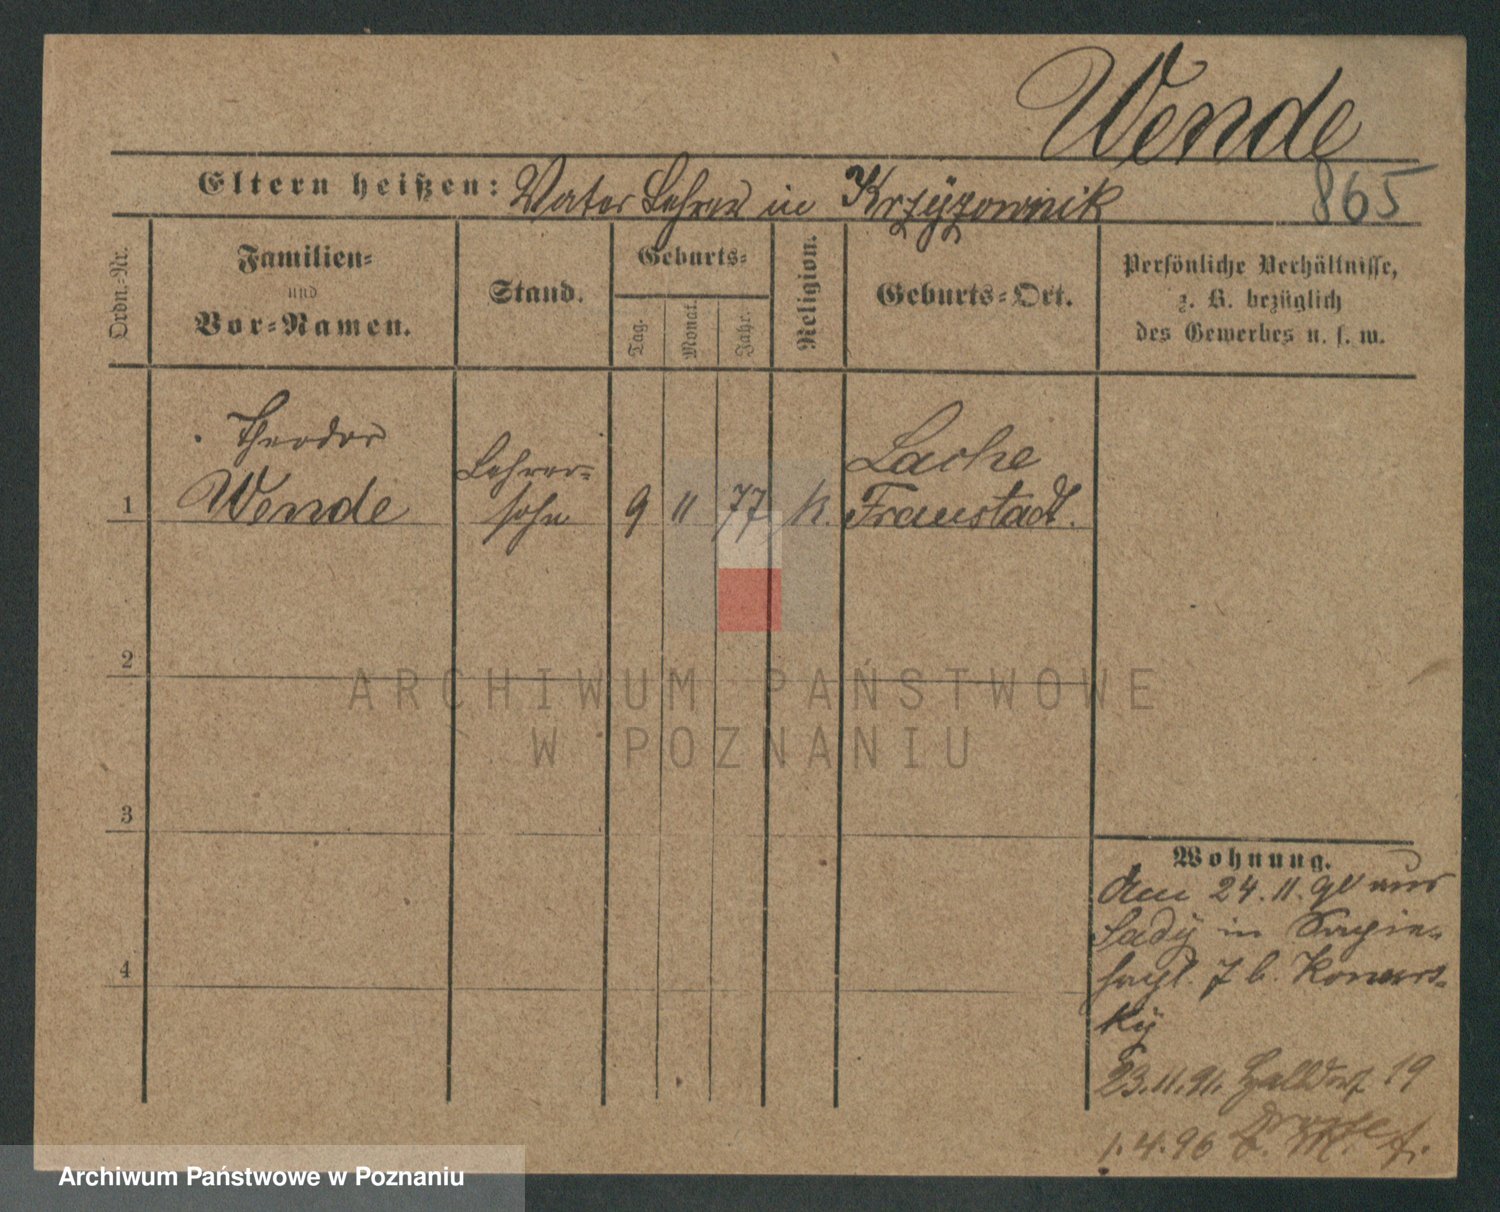 Wende
865
Eltern heißen: Vater Lehrer in Krzyżownik
Ordn.-Nr.
Familien-
und
Vor-Namen.
Stand.
Geburts-
Tag.
Monat.
Jahr.
Religion.
Geburts-Ort.
Persönliche Verhältnisse,
z. B. bezüglich
des Gewerbes u. s. w.
1
Theodor
Wende
Lehrer-
sohn
9
11
77
k.
Lache
Fraustadt.
2
3
4
Wohnung.
Am 24.11.90 aus
Sady in Sapie-
hapl. 7 b. Konars-
ky
23.11.91. Halldorf 19
1.4.96
ARCHIWUM PAŃSTWOWE
W POZNANIU
Archiwum Państwowe w Poznaniu